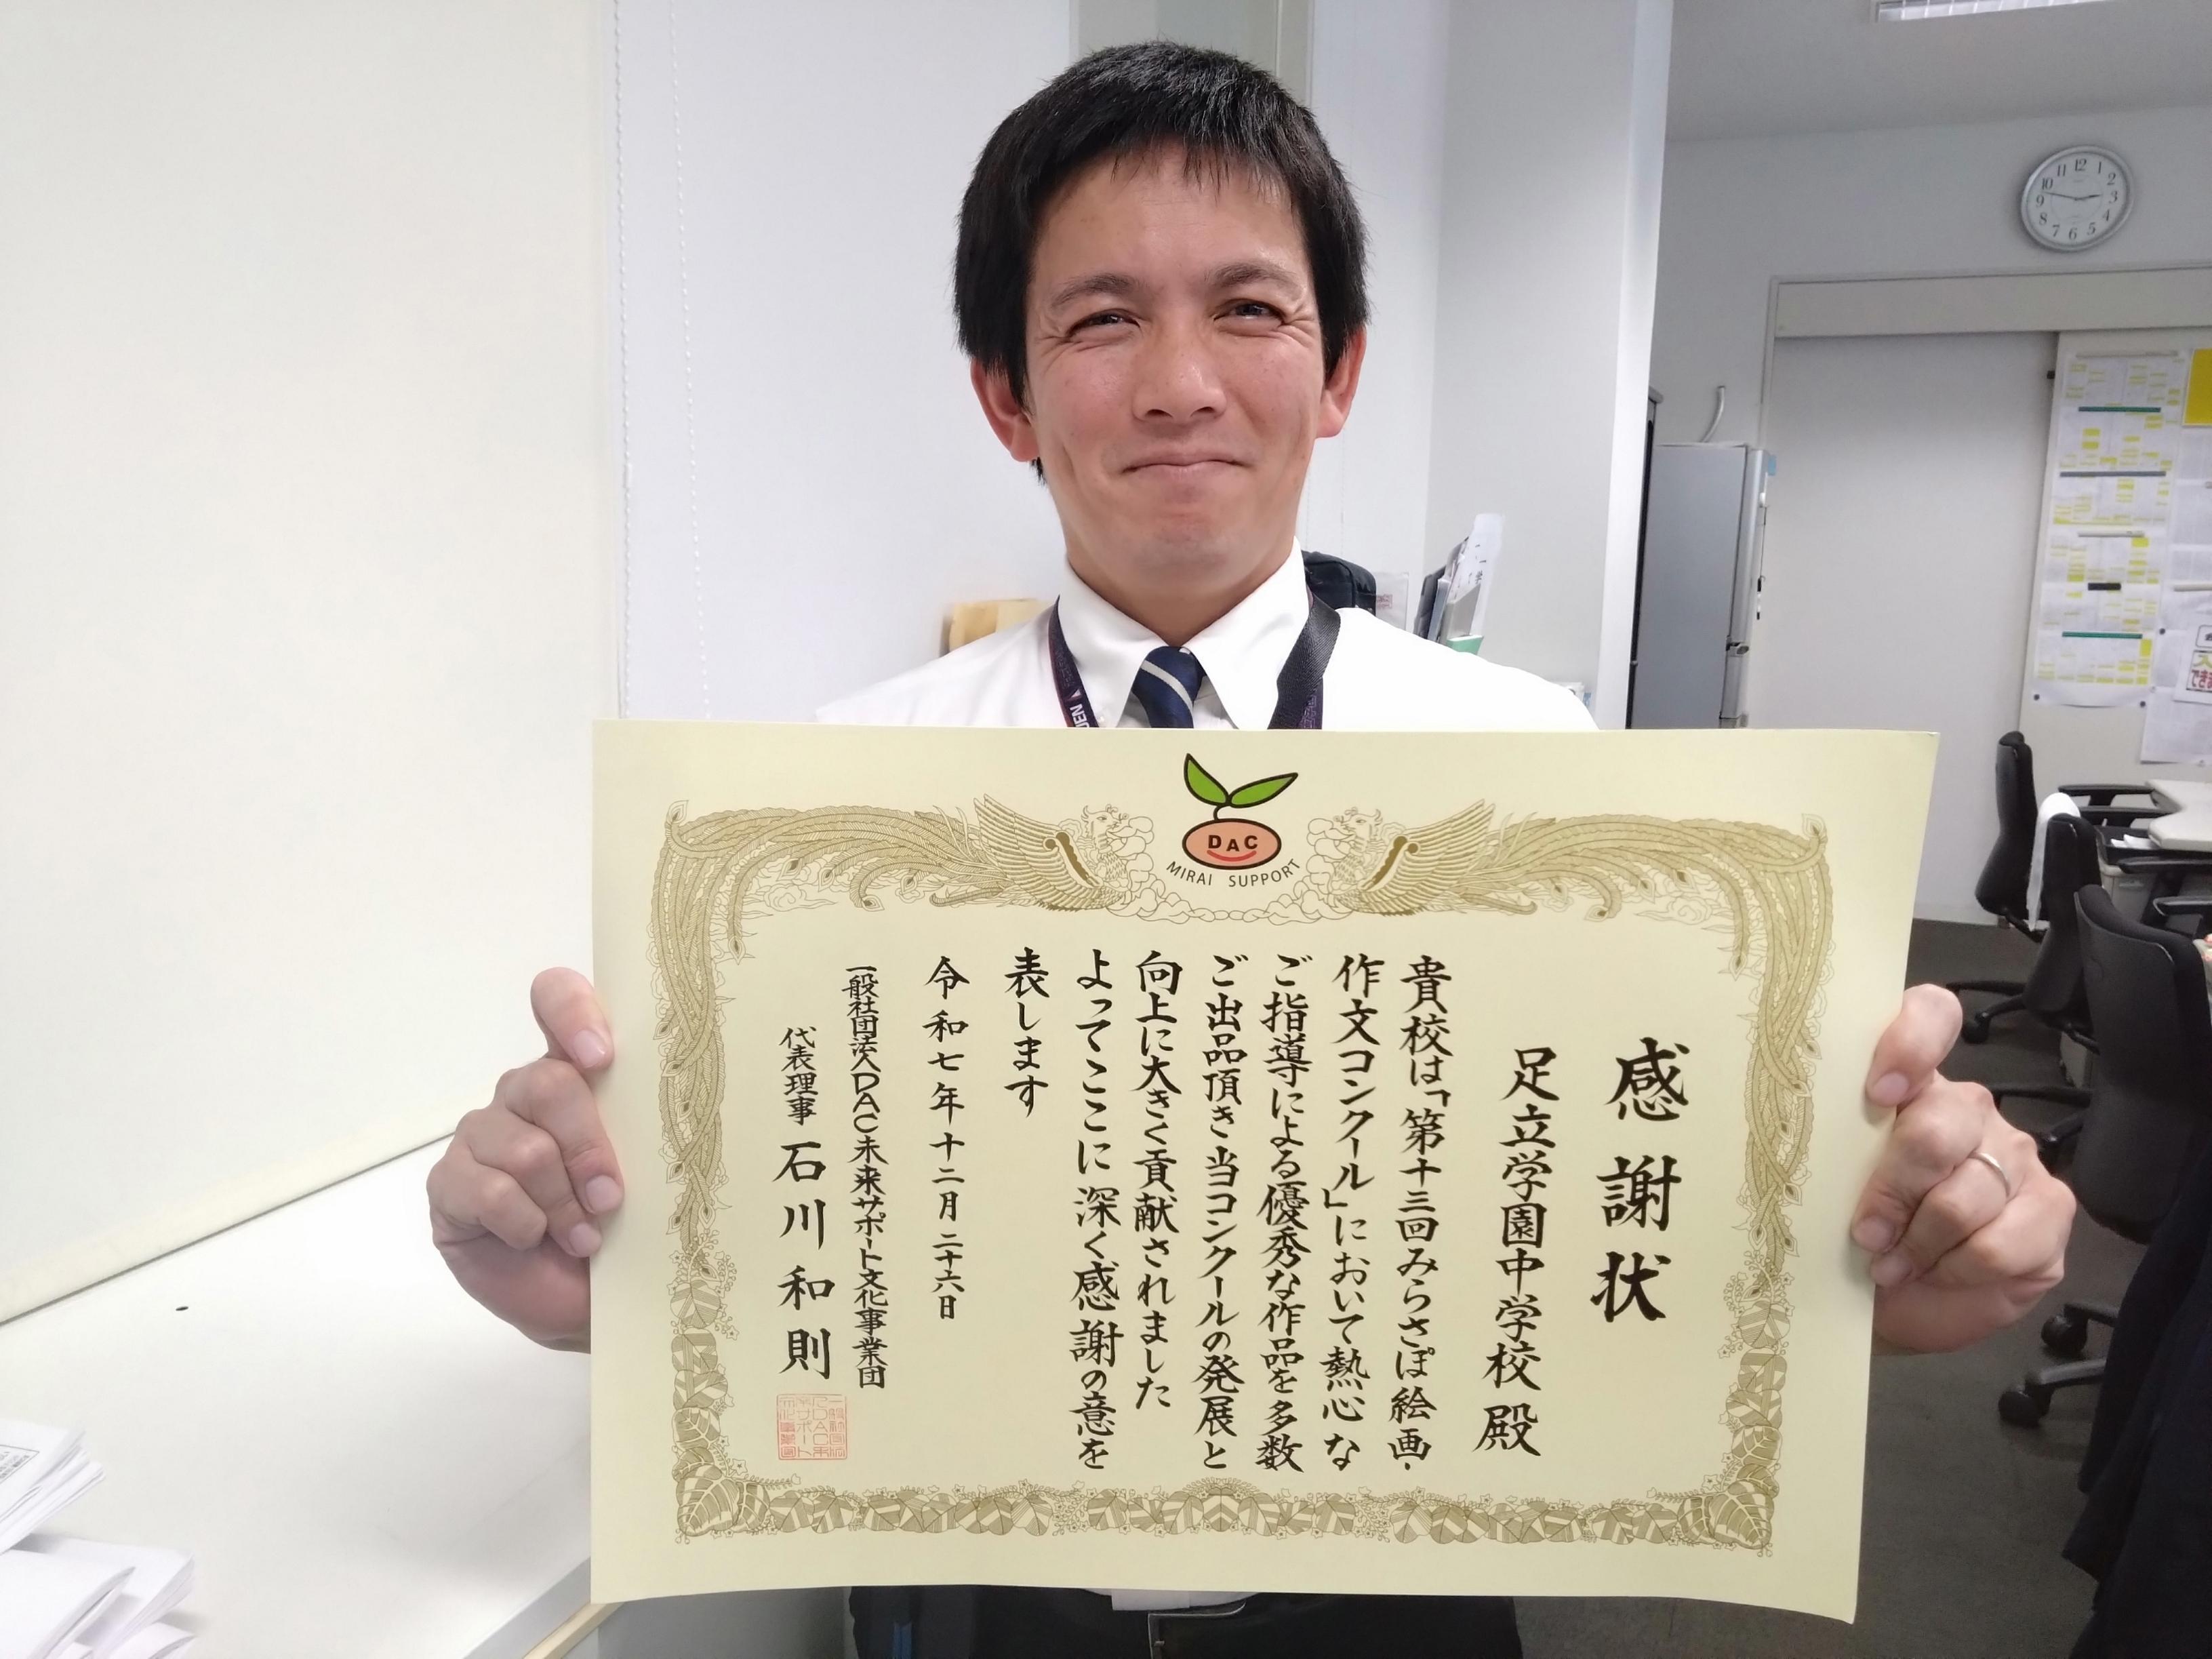 DAC
MIRAI SUPPORT
感謝状
足立学園中学校殿
貴校は「第十三回みらさぽ絵画・
作文コンクール」において熱心な
ご指導による優秀な作品を多数
ご出品頂き当コンクールの発展と
向上に大きく貢献されました
よってここに深く感謝の意を
表します
令和七年十二月二十六日
一般社団法人DAC未来サポート文化事業団
代表理事 石川和則
12
1
2
3
4
5
6
7
8
9
10
11